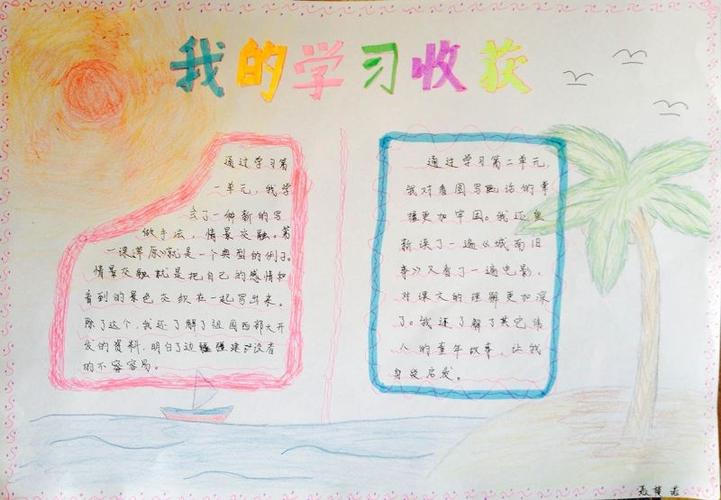 我的学习收获
通过学习第
一单元，我学
会了一种新的写
作手法，情景交融。第
一课《草原》就是一个典型的例子。
情景交融就是把自己的感情和
看到的景色交织在一起写出来。
除了这个，我还了解了祖国西部大开
发的资料，明白了边疆建设者
的不容易。
通过学习第二单元，
我对看图写的事
更加牢固。我还重
新读了一遍《城南旧
事》又看了一遍电影，
对课文的理解更加深
了。我还了解了其它
人的童年故事，让我
身受启发。